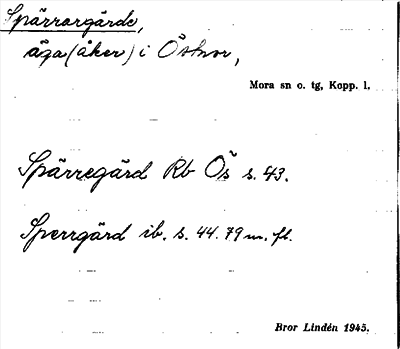 Spärrargärde,
äga (åker) i Östnor,
Mora sn o. tg, Kopp. l.
Spärregärd Rb Ös s. 43.
Sperrgärd ib. s. 44. 79 m. fl.
Bror Lindén 1945.